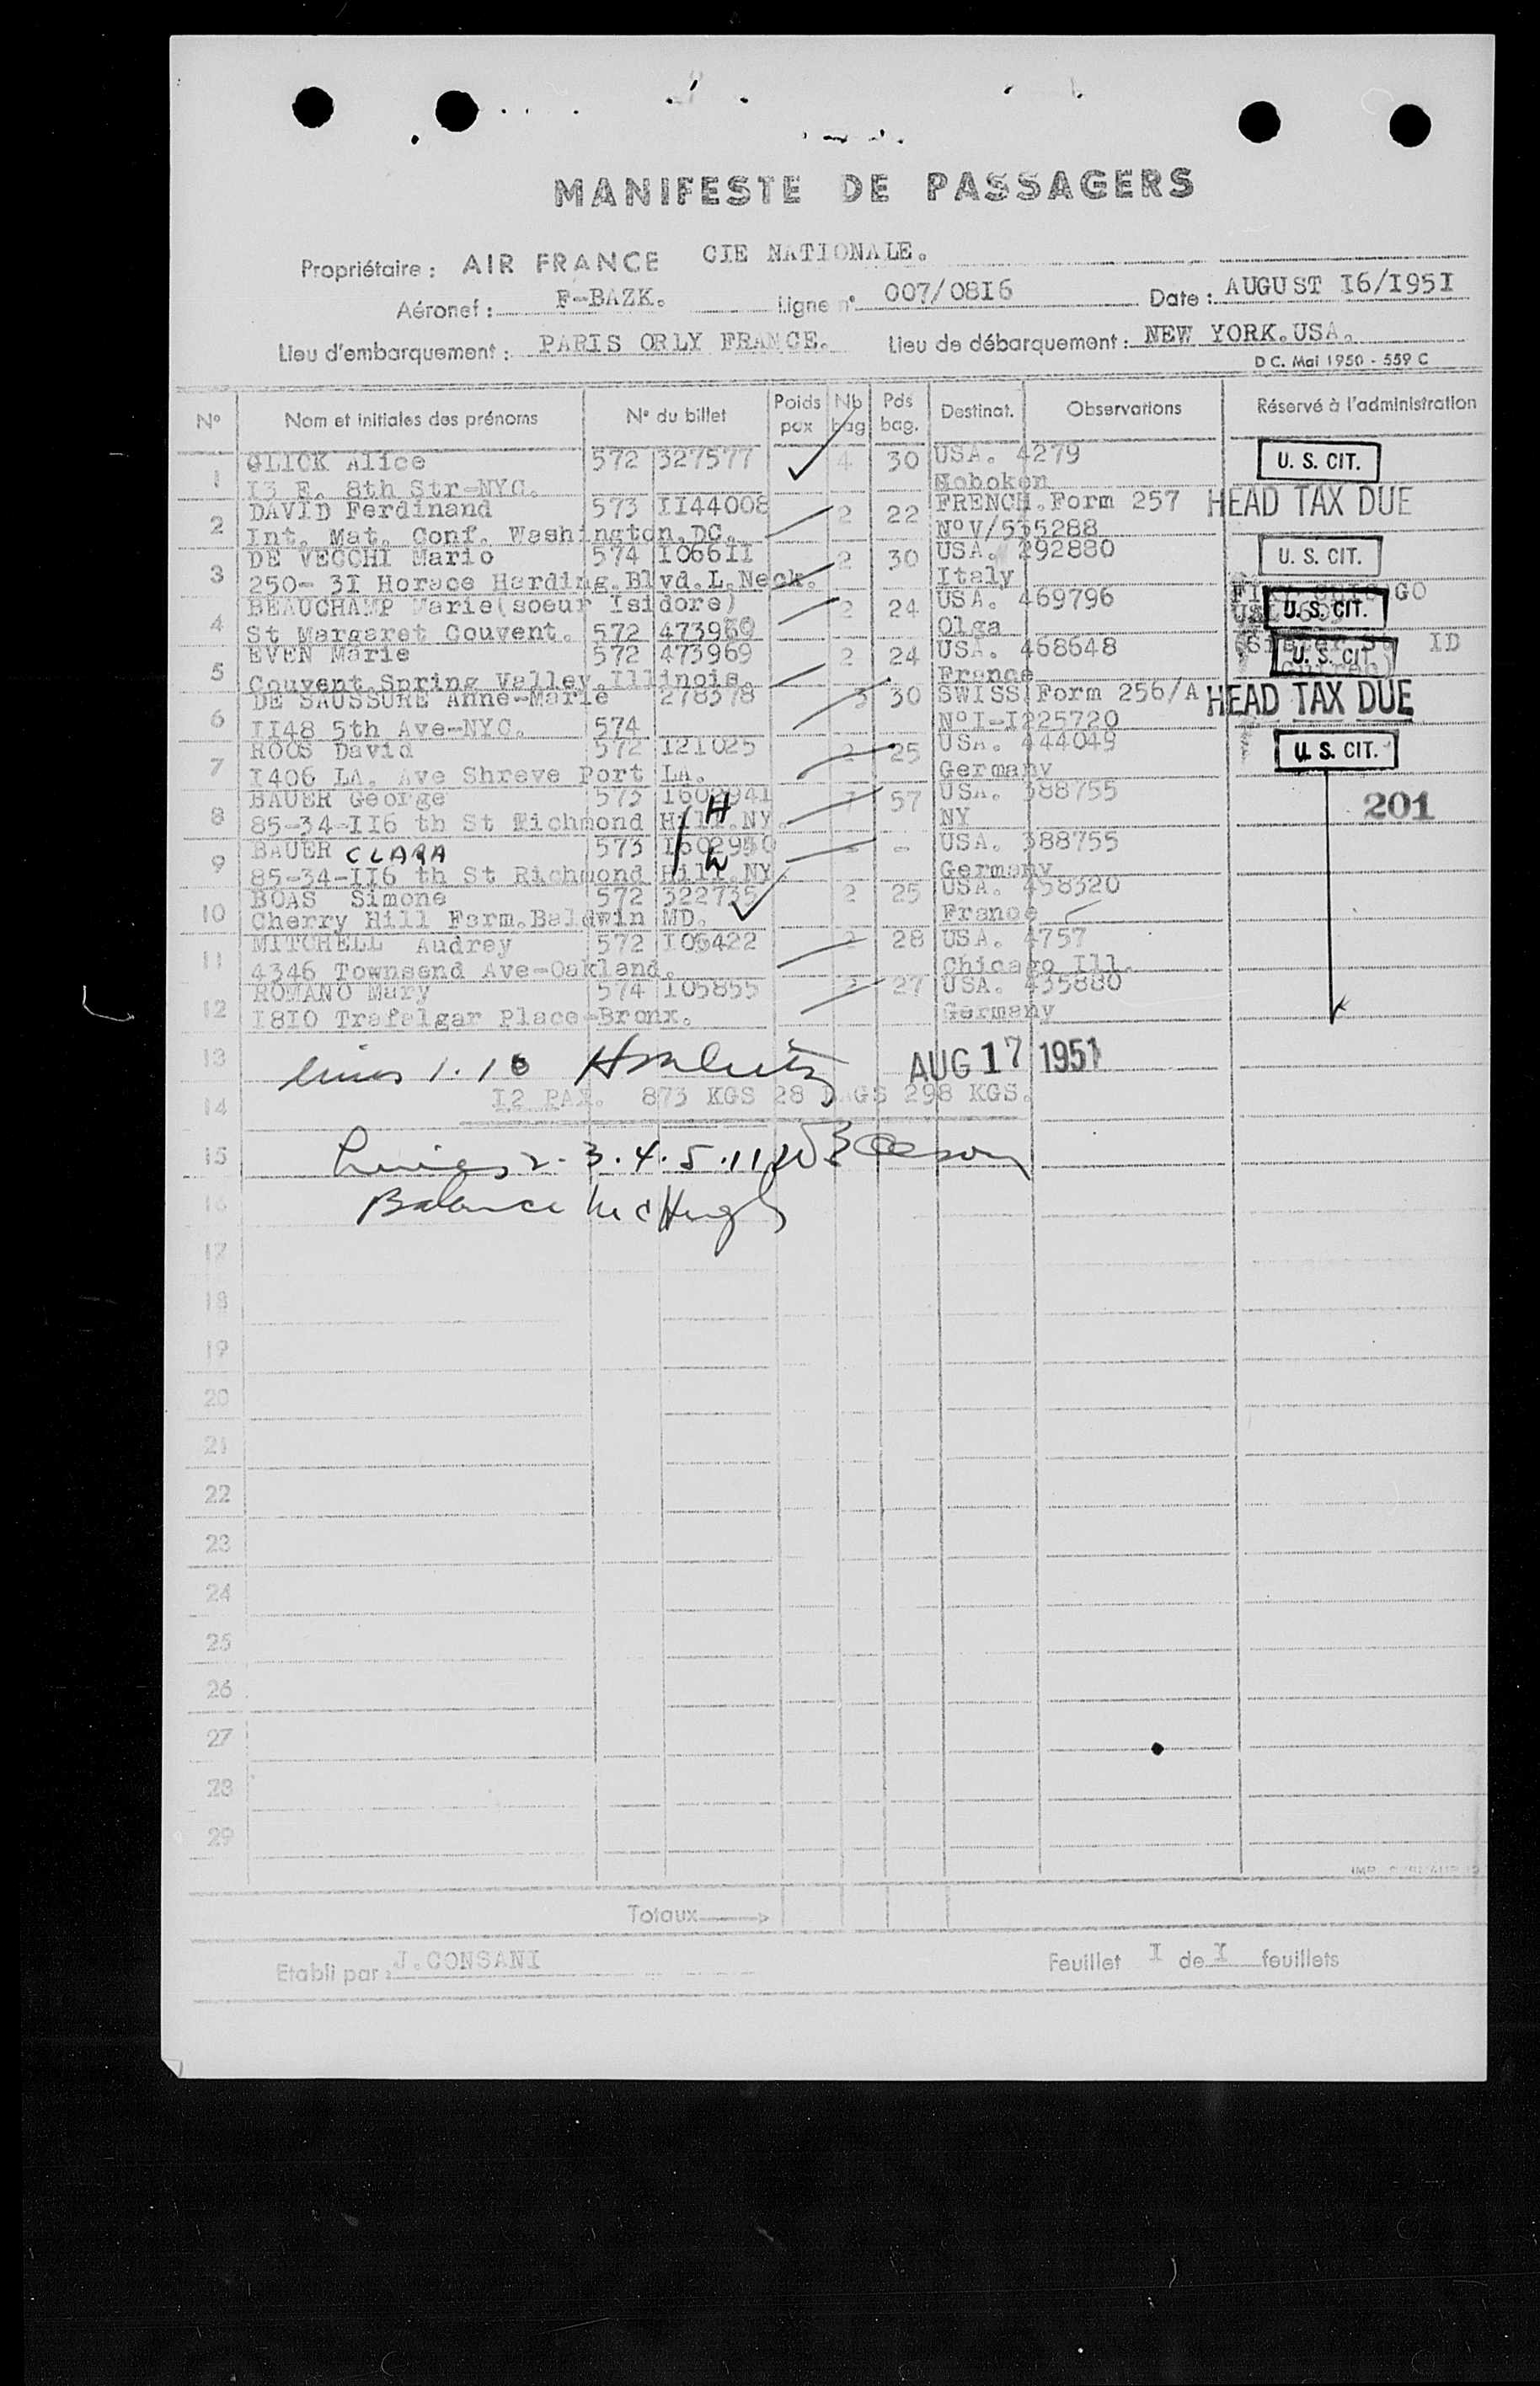 MANIFESTE DE PASSAGERS
Propriétaire : AIR FRANCE CIE NATIONALE.
Aéronef : F-BAZK. Ligne n° 007/08I6 Date : AUGUST I6/I95I
Lieu d'embarquement : PARIS ORLY FRANCE. Lieu de débarquement : NEW YORK.USA.
D C. Mai 1950 - 559 C
N° Nom et initiales des prénoms N° du billet Poids pax Nb bag Pds bag. Destinat. Observations Réservé à l'administration
1 GLICK Alice 572 327577 4 30 USA. 4279 U. S. CIT.
I3 E. 8th Str-NYC. Hoboken
2 DAVID Ferdinand 573 II44008 2 22 FRENCH.Form 257 HEAD TAX DUE
Int. Mat. Conf. Washington.DC. N°V/535288
3 DE VECCHI Mario 574 I066II 2 30 USA. 292880 U. S. CIT.
250- 3I Horace Harding.Blvd.L.Neck. Italy
4 BEAUCHAMP Marie(soeur Isidore) 2 24 USA. 469796 GO U. S. CIT.
St Margaret Couvent. 572 473960 Olga
5 EVEN Marie 572 473969 2 24 USA. 468648 (Sister ID U. S. CIT.
Couvent Spring Valley.Illinois. France
6 DE SAUSSURE Anne-Marie 278378 3 30 SWISS Form 256/A HEAD TAX DUE
II48 5th Ave-NYC. 574 N°I-I225720
7 ROOS David 572 I2I025 2 25 USA. 444049 U. S. CIT.
I406 LA. Ave Shreve Port LA. Germany
8 BAUER George 573 I602941 H 57 USA. 388755 201
85-34-II6 th St Richmond Hill.NY. NY
9 BAUER CLARA 573 I602950 W - - USA. 388755
85-34-II6 th St Richmond Hill.NY. Germany
10 BOAS Simone 572 322735 2 25 USA. 458320
Cherry Hill Farm.Baldwin MD. France
11 MITCHELL Audrey 572 I06422 2 28 USA. 4757
4346 Townsend Ave-Oakland. Chicago Ill.
12 ROMANO Mary 574 I05855 2 27 USA. 435880
I8IO Trafalgar Place-Bronx. Germany
13 lines 1.10 AUG 17 1951
14 I2 PAX. 873 KGS 28 BAGS 298 KGS.
15 Lines 2.3.4.5.11
16 Balance McHugh
17
18
19
20
21
22
23
24
25
26
27
28
29
Totaux
Etabli par : J.CONSANI Feuillet I de I feuillets